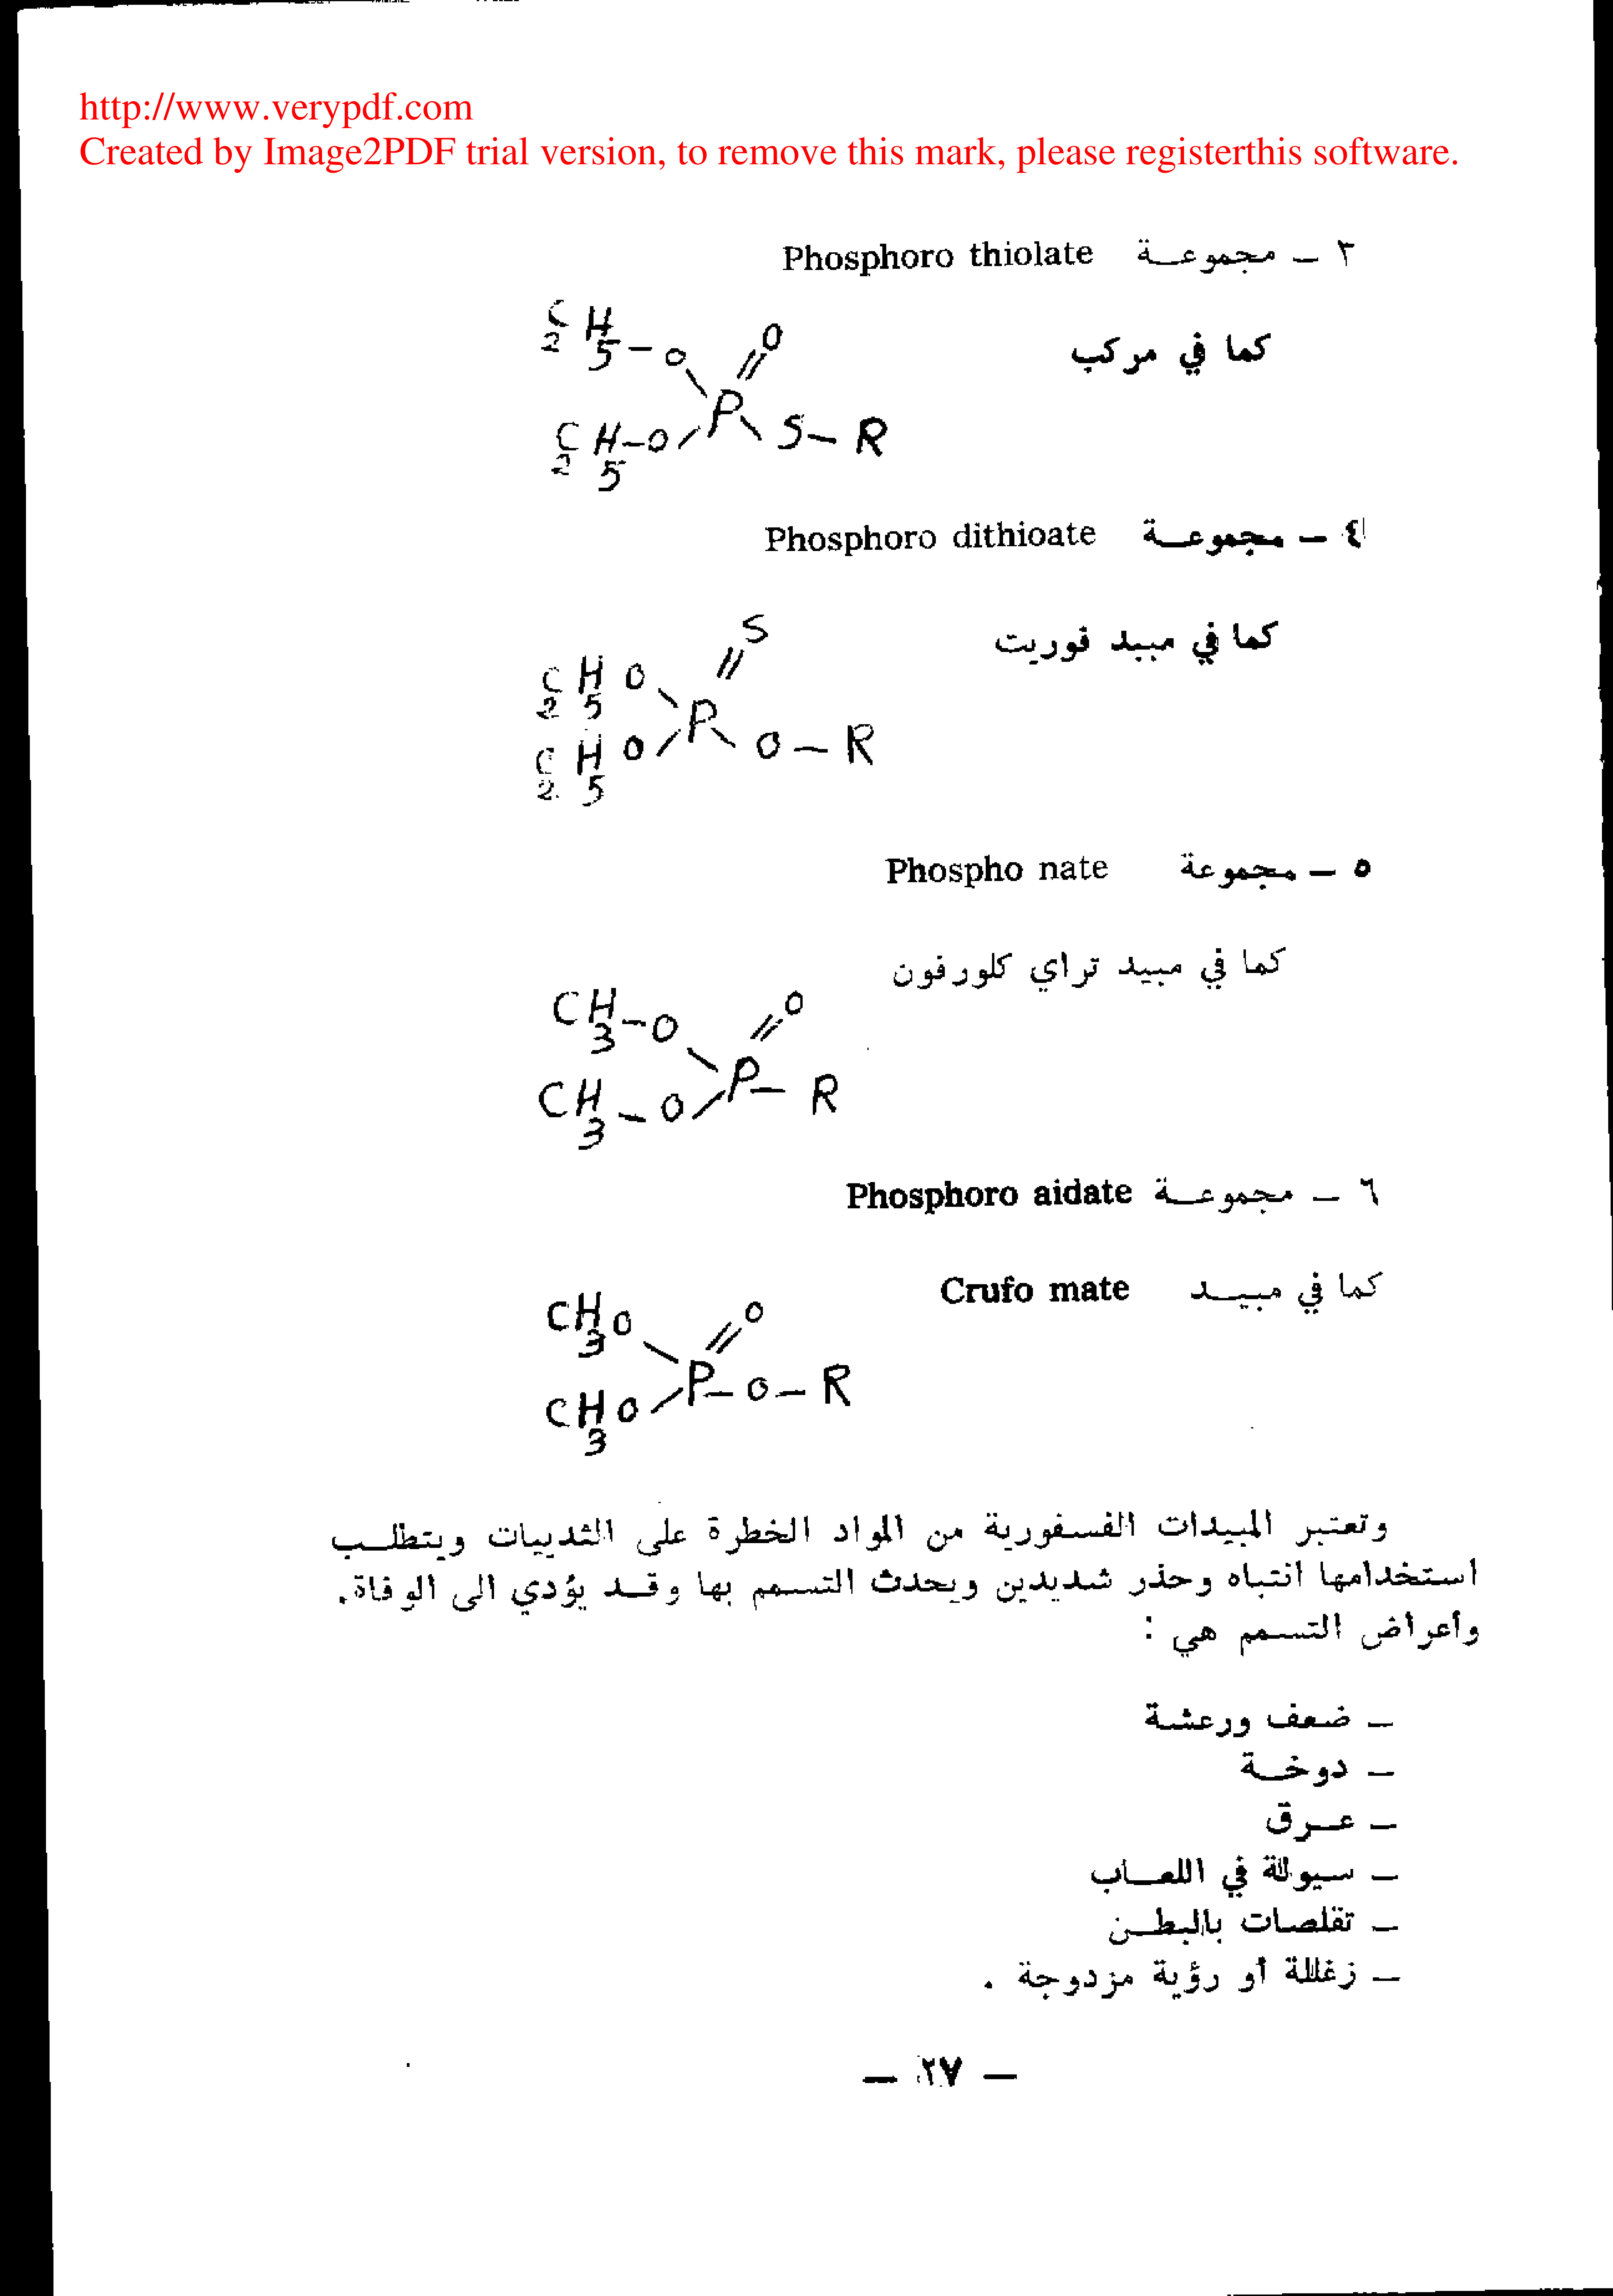 http://www.verypdf.com
Created by Image2PDF trial version, to remove this mark, please registerthis software.
٣ ـ مجموعة Phosphoro thiolate
كما في مركب
C2H5-O
O
P
C2H5-O
S-R
٤ ـ مجموعة Phosphoro dithioate
كما في مبيد فوريت
S
C2H5O
P
C2H5O
O-R
٥ ـ مجموعة Phospho nate
كما في مبيد تراي كلورفون
CH3-O
O
P-R
CH3-O
٦ ـ مجموعة Phosphoro aidate
كما في مبيد Crufo mate
CH3O
O
P-O-R
CH3O
وتعتبر المبيدات الفسفورية من المواد الخطرة على الثدييات ويتطلب
استخدامها انتباه وحذر شديدين ويحدث التسمم بها وقد يؤدي الى الوفاة.
وأعراض التسمم هي :
ـ ضعف ورعشة
ـ دوخة
ـ عرق
ـ سيولة في اللعاب
ـ تقلصات بالبطن
ـ زغللة أو رؤية مزدوجة .
ـ ٢٧ ـ